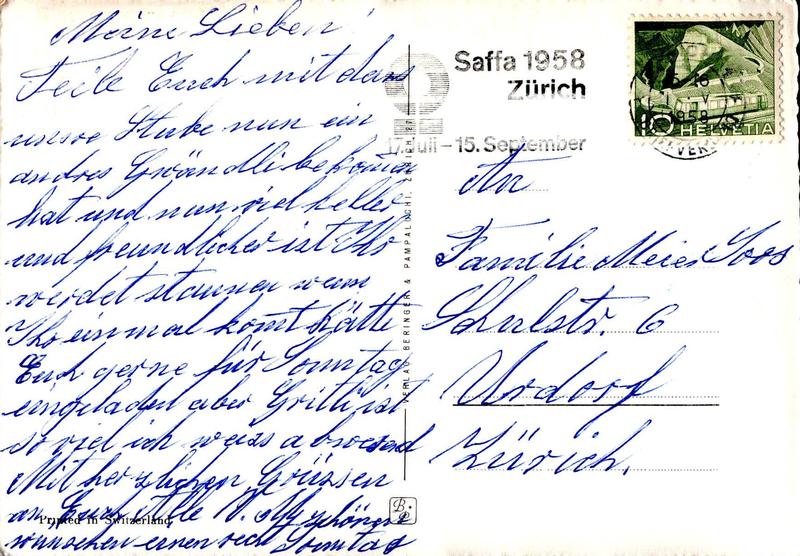 Meine Lieben!
Teile Euch mit dass
unsre Stube nun ein
andres Gwändli bekommen
hat und nun viel heller
und freundlicher ist Ihr
werdet staunen wenn
Ihr einmal komt hätte
Euch gerne für Sonntag
eingeladen aber Gritli ist
so viel ich weiss abwesend
Mit herzlichen Grüssen
an Euch Alle
wünschen einen Sonntag
Printed in Switzerland
VERLAG BERINGER & PAMPALUCHI, ZÜRICH
B.P.
Saffa 1958
Zürich
17. Juli - 15. September
1958
10 HELVETIA
An
Familie Meier Soos
Schulstr. 6
Urdorf
Zürich.